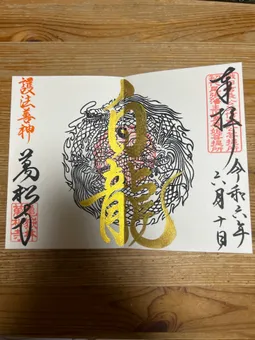 奉拝
令和六年
二月十日
白龍
護法善神
萬松寺